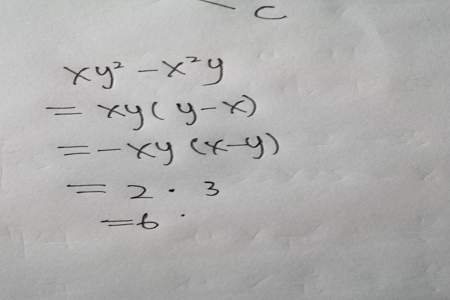 C
xy² - x²y
= xy(y-x)
= -xy(x-y)
= 2 · 3
= 6 ·